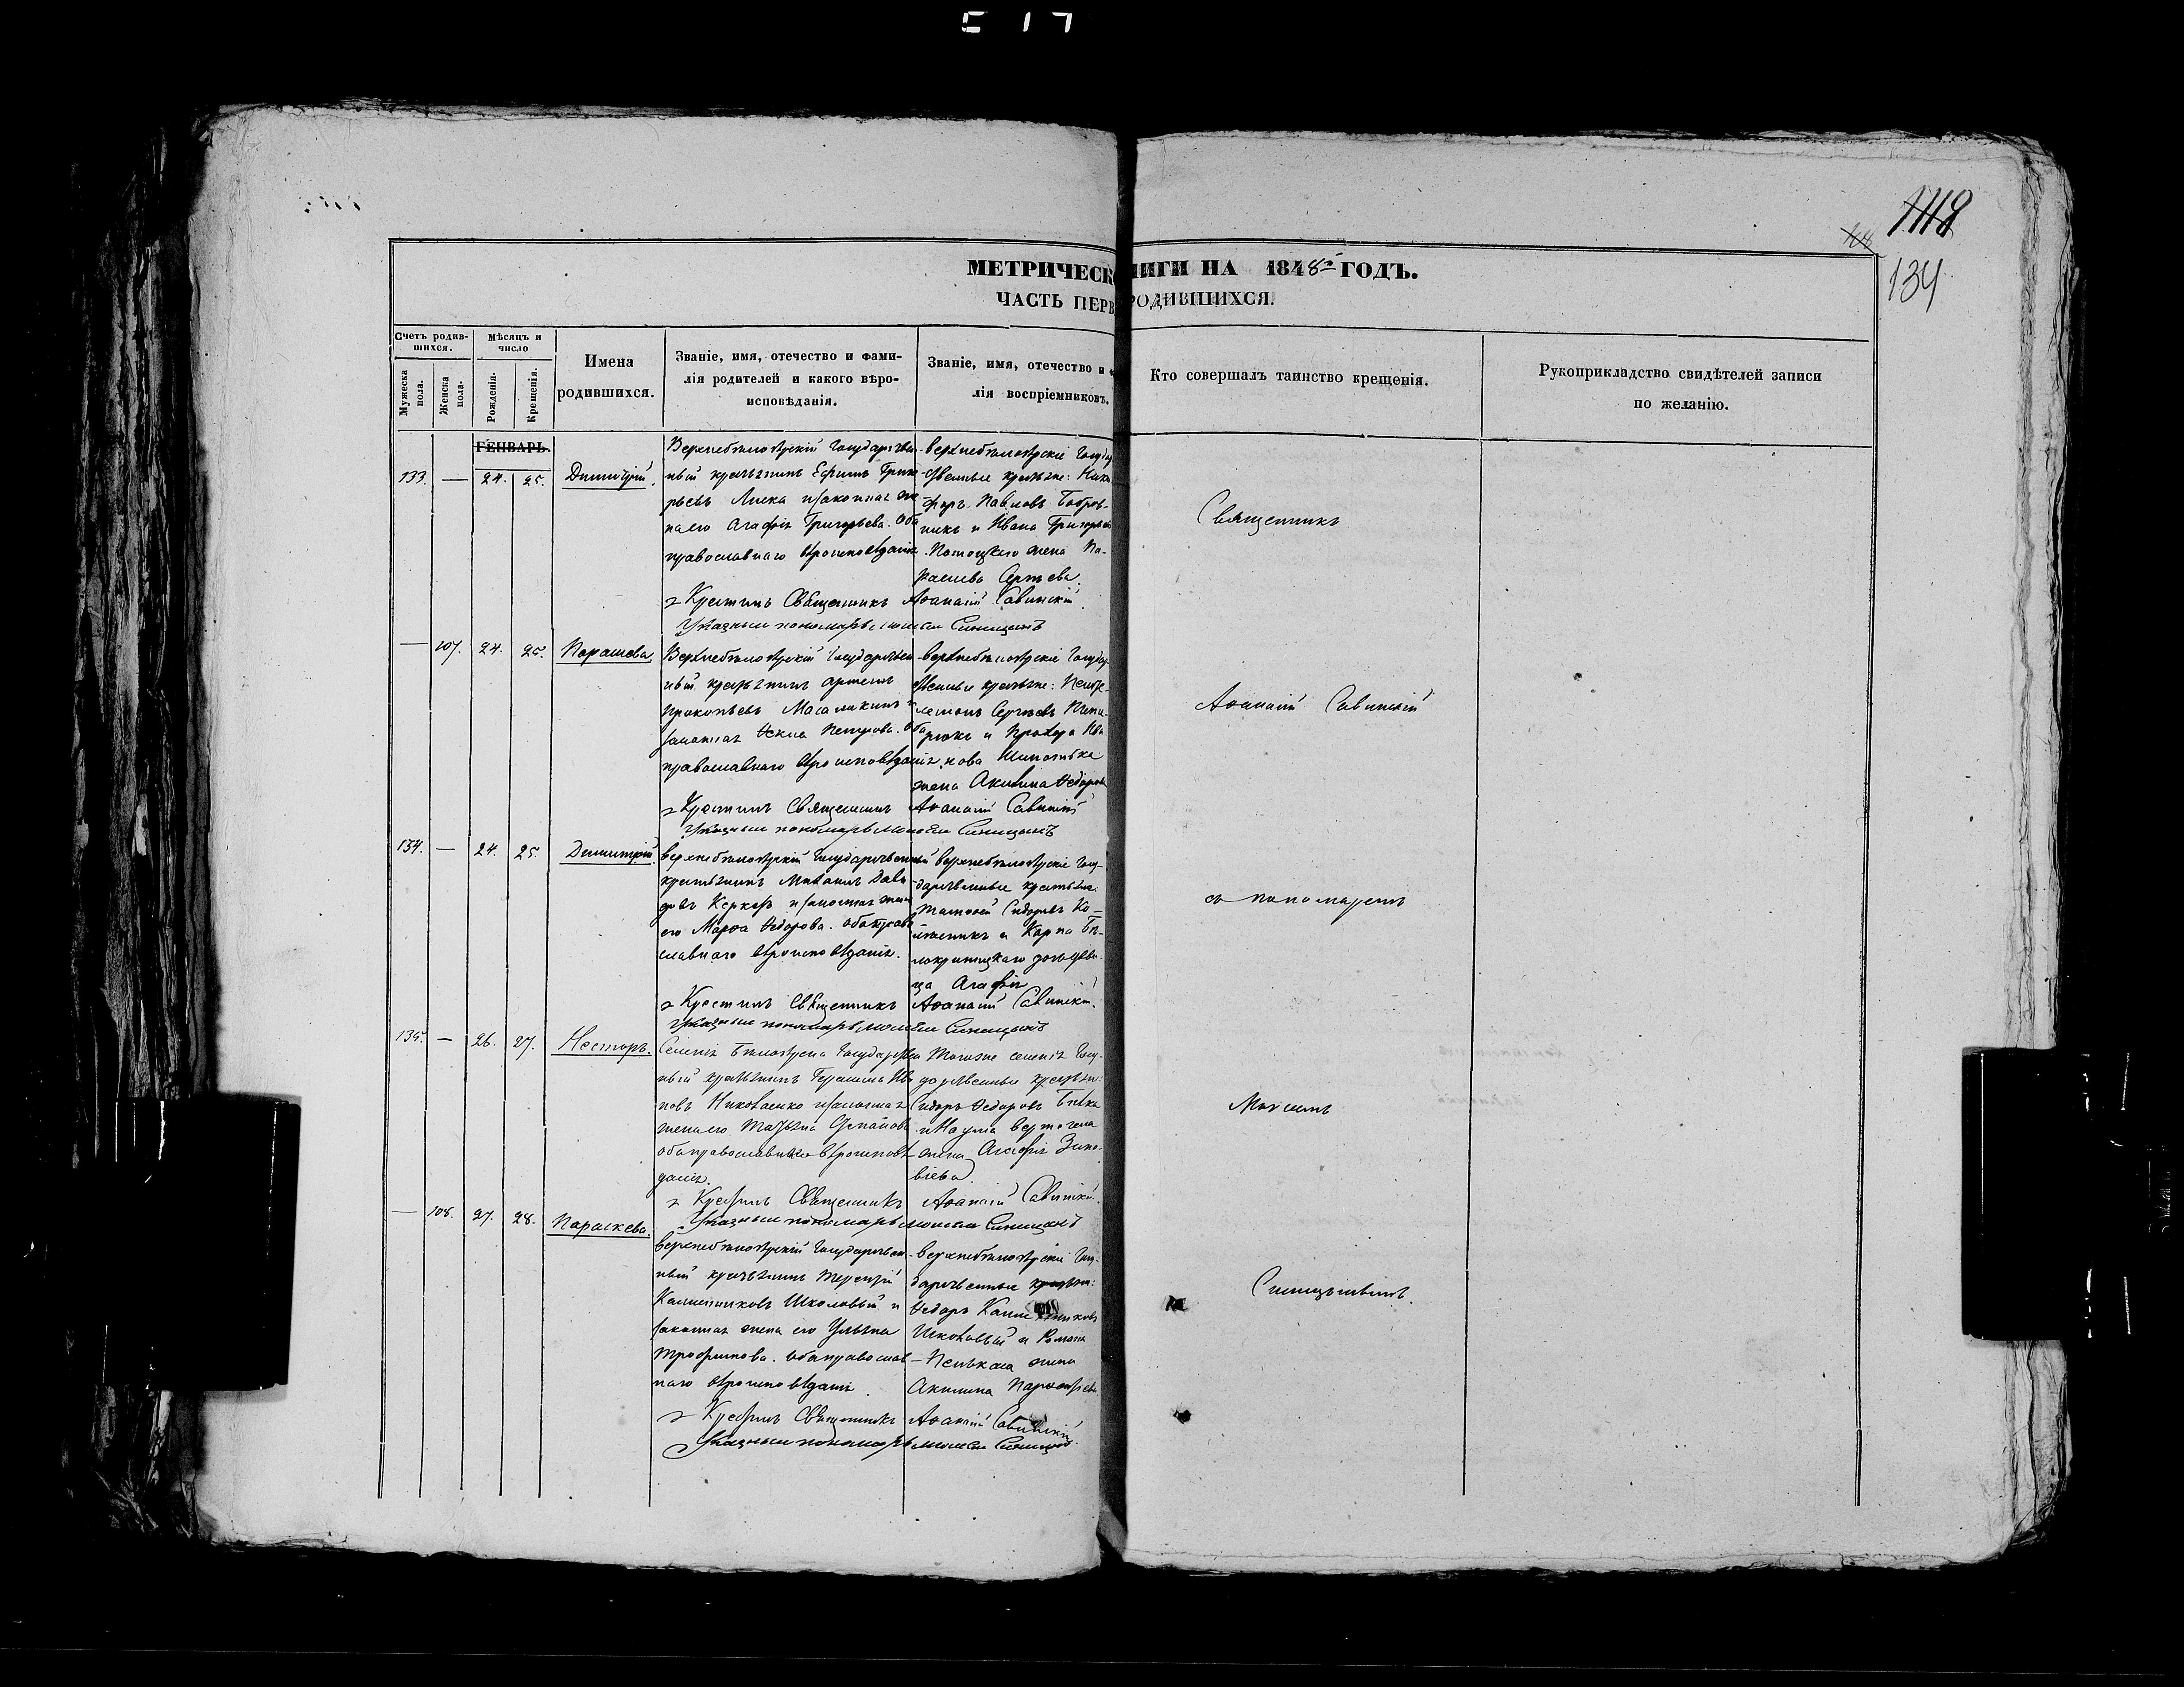 E 17
1118
134
МЕТРИЧЕСК НИГИ НА 1848й ГОДЪ.
ЧАСТЬ ПЕРВ РОДИВШИХСЯ.
Счетъ родив-
шихся.
Мужеска
пола.
Женска
пола.
Мѣсяцъ и
число
Рожденія.
Крещенія.
Имена
родившихся.
Званіе, имя, отечество и фами-
лія родителей и какого вѣро-
исповѣданія.
Званіе, имя, отечество и ф
лія воспріемниковъ.
Кто совершалъ таинство крещенія.
Рукоприкладство свидѣтелей записи
по желанію.
ГЕНВАРЬ.
133. — 24. 25. Димитрій.
Верхнебѣлозерскій Государствен-
ный крестьянинъ Ефимъ Григо
рьевъ Лиска и законная же
на его Агафія Григорьева. Оба
православнаго вѣроисповѣданія
верхнебѣлозерскіе Госуда
ственные крестьяне: Ники
форъ Павловъ Бобров-
никъ и Ивана Григорьева
жена Па-
раскева Сергѣева.
Крестилъ Священникъ Аѳанасій Савинскій
Указный пономарь Моисей Синицынъ
— 107. 24. 25. Параскева.
Верхнебѣлозерскій Государствен
ный крестьянинъ Артемъ
Прокопьевъ и
законная Ѳекла Петрова. Оба
православнаго вѣроисповѣданія
верхнебѣлозерскіе Государ
ственные крестьяне:
Сергѣевъ
и Прохора Ива
нова
жена Акилина Ѳедорова
Крестилъ Священникъ Аѳанасій Савинскій
Указный пономарь Моисей Синицынъ
134. — 24. 25. Димитрій.
верхнебѣлозерскій Государственный
крестьянинъ Михаилъ Дави
довъ и законная жена
его Марѳа Ѳедорова. оба право
славнаго вѣроисповѣданія.
верхнебѣлозерскіе Госу-
дарственные крестьяне
Сидоровъ Ко-
и Карпа Бѣ-
локриницкаго дочь дѣви
ца Агафія
Крестилъ Священникъ Аѳанасій Савинскій.
Указный пономарь Моисей Синицынъ
135. — 26. 27. Несторъ.
Селенія Бѣлозерки Государствен
ный крестьянинъ Герасимъ Ива
новъ Николаенко и законная
жена его Татьяна Степанова
оба православнаго вѣроисповѣ-
данія.
Тогоже селенія Госу-
дарственные крестьяне:
Сидоръ Ѳедоровъ
и Наума
жена Агафія Зино-
віева.
Крестилъ Священникъ Аѳанасій Савинскій.
Указный пономарь Моисей Синицынъ
— 108. 27. 28. Параскева.
верхнебѣлозерскій Государствен-
ный крестьянинъ Терентій
Калениковъ Шкловый и
законная жена его Ульяна
Трофимова. оба православ-
наго вѣроисповѣданія.
верхнебѣлозерскіе Госу-
дарственные крестьяне:
Ѳедоръ Калениковъ
и Романа
жена
Акилина
Крестилъ Священникъ Аѳанасій Савинскій
Указный пономарь Моисей Синицынъ
Священникъ
Аѳанасій Савинскій
съ пономаремъ
Моисеемъ
Синицынымъ.